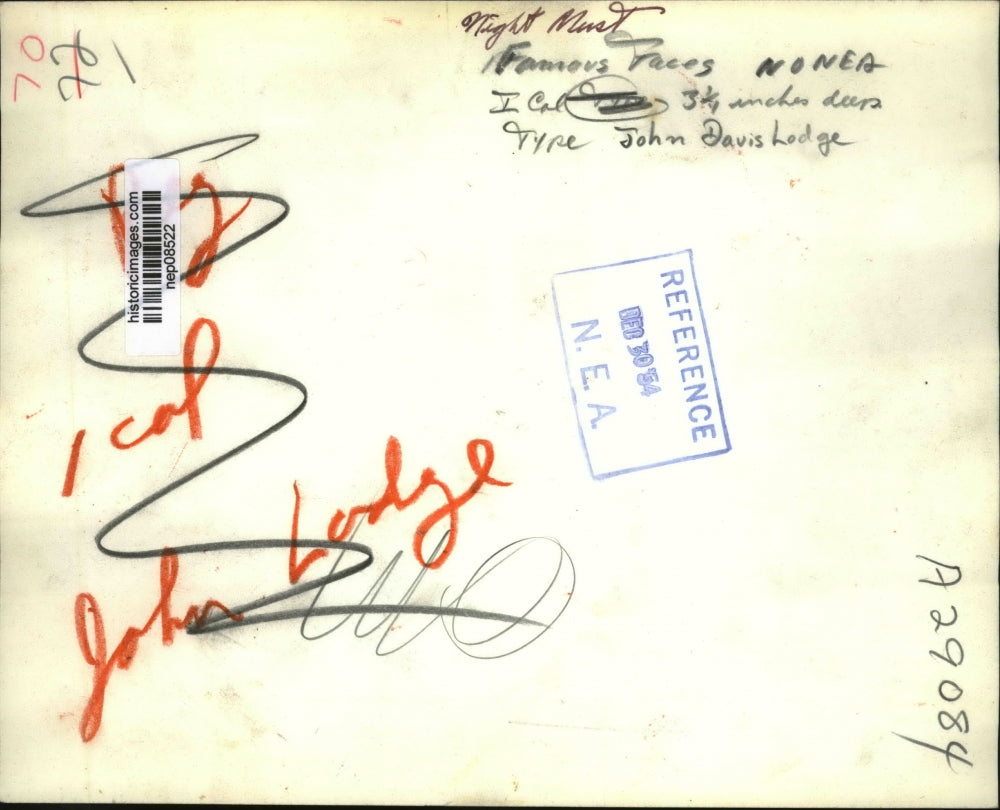 Night Must
Famous Faces NO NEA
I Col 3 1/4 inches deep
Type John Davis Lodge
70
historicimages.com
nep08522
1 col
John Lodge
REFERENCE
DEC 30 '54
N. E. A.
A29084